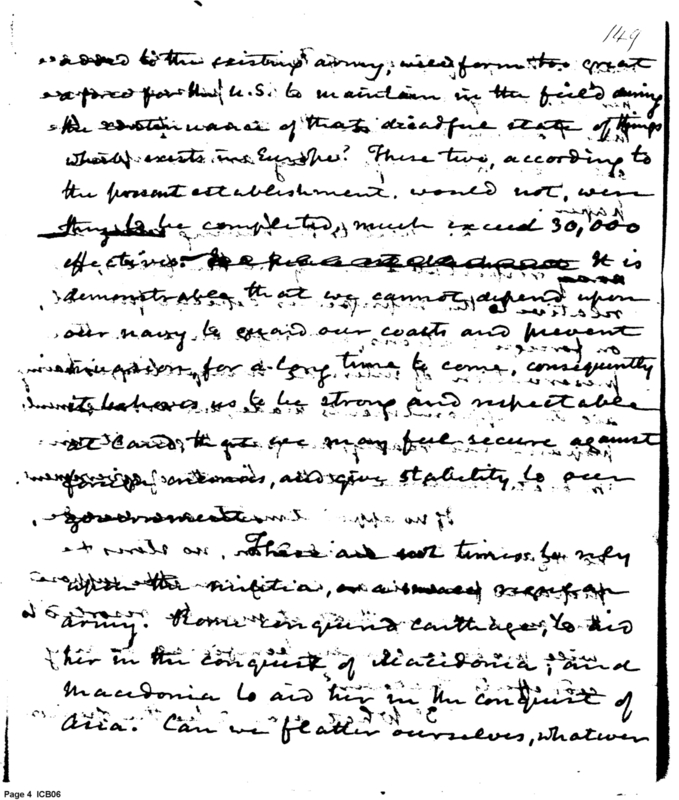 149
added to the existing army, will form too great
a force for the U.S. to maintain in the field during
the continuance of that dreadful state of things
which exists in Europe? These two, according to
the present establishment, would not, were
they to be completed, much exceed 30,000
effectives. It is
demonstrable that we cannot depend upon
our navy to guard our coasts and prevent
invasion, for a long time to come, consequently
it behoves us to be strong and respectable
at land, that we may feel secure against
foreign enemies, and give stability to our
government.
These are not times to rely
upon the militia, or a small regular
army. Rome conquered Carthage, to aid
her in the conquest of Macedonia; and
Macedonia to aid her in the conquest of
Asia. Can we flatter ourselves, whatever
Page 4 ICB06